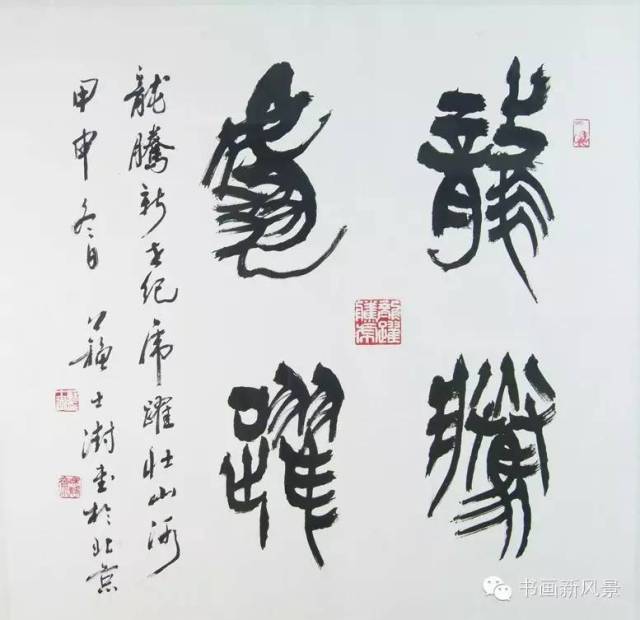 龍騰
虎躍
龍騰新世紀虎躍壯山河
甲申冬日蘇士澍書於北京
书画新风景